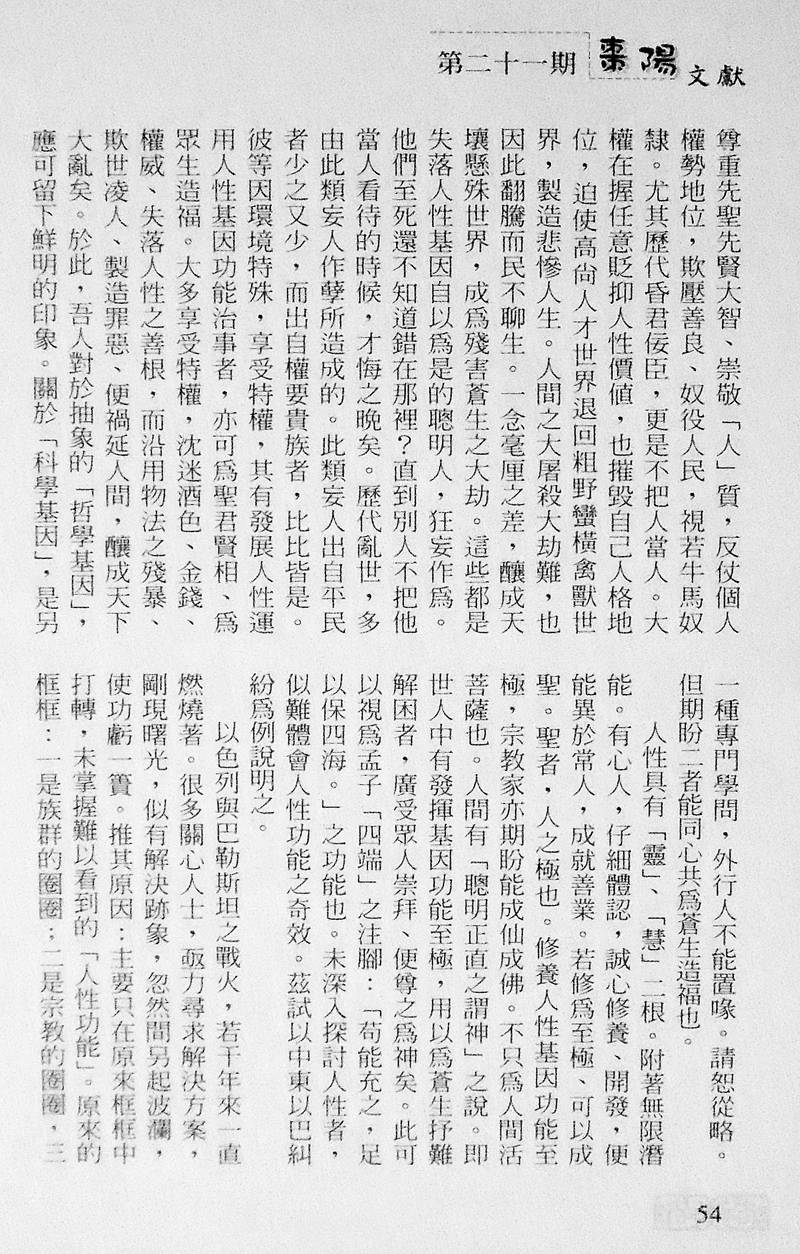 第二十一期
棗陽
文獻
尊重先聖先賢大智、崇敬「人」質，反仗個人
權勢地位，欺壓善良、奴役人民，視若牛馬奴
隸。尤其歷代昏君佞臣，更是不把人當人。大
權在握任意貶抑人性價值，也摧毀自己人格地
位，迫使高尚人才世界退回粗野蠻橫禽獸世
界，製造悲慘人生。人間之大屠殺大劫難，也
因此翻騰而民不聊生。一念毫厘之差，釀成天
壤懸殊世界，成為殘害蒼生之大劫。這些都是
失落人性基因自以為是的聰明人，狂妄作為。
他們至死還不知道錯在那裡？直到別人不把他
當人看待的時候，才悔之晚矣。歷代亂世，多
由此類妄人作孽所造成的。此類妄人出自平民
者少之又少，而出自權要貴族者，比比皆是。
彼等因環境特殊，享受特權，其有發展人性運
用人性基因功能治事者，亦可為聖君賢相、為
眾生造福。大多享受特權，沈迷酒色、金錢、
權威、失落人性之善根，而沿用物法之殘暴、
欺世凌人、製造罪惡、便禍延人間，釀成天下
大亂矣。於此，吾人對於抽象的「哲學基因」，
應可留下鮮明的印象。關於「科學基因」，是另
一種專門學問，外行人不能置喙。請恕從略。
但期盼二者能同心共為蒼生造福也。
人性具有「靈」、「慧」二根。附著無限潛
能。有心人，仔細體認，誠心修養、開發，便
能異於常人，成就善業。若修為至極、可以成
聖。聖者，人之極也。修養人性基因功能至
極，宗教家亦期盼能成仙成佛。不只為人間活
菩薩也。人間有「聰明正直之謂神」之說。即
世人中有發揮基因功能至極，用以為蒼生抒難
解困者，廣受眾人崇拜、便尊之為神矣。此可
以視為孟子「四端」之注腳：「苟能充之，足
以保四海。」之功能也。未深入探討人性者，
似難體會人性功能之奇效。茲試以中東以巴糾
紛為例說明之。
以色列與巴勒斯坦之戰火，若干年來一直
燃燒著。很多關心人士，亟力尋求解決方案，
剛現曙光，似有解決跡象，忽然間另起波瀾，
使功虧一簣。推其原因：主要只在原來框框中
打轉，未掌握難以看到的「人性功能」。原來的
框框：一是族群的圈圈；二是宗教的圈圈，三
54